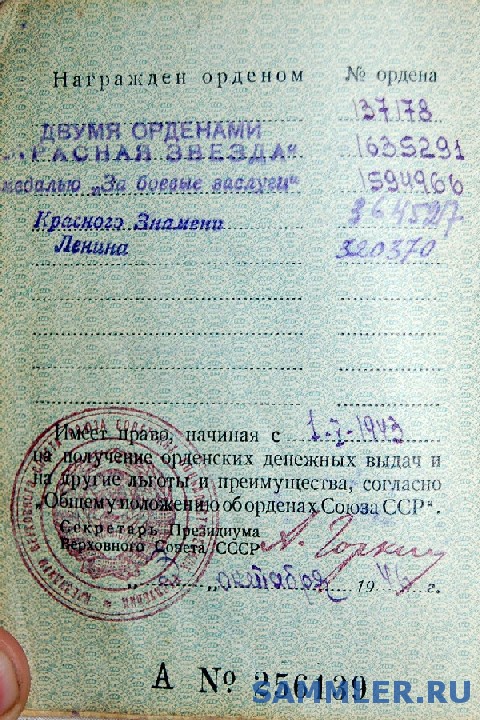 Награжден орденом № ордена
137178
ДВУМЯ ОРДЕНАМИ
„КРАСНАЯ ЗВЕЗДА“ 1635291
медалью „За боевые заслуги“ 1594966
Красного Знамени 364527
Ленина 320370
Имеет право, начиная с 1-7-1943
на получение орденских денежных выдач и
на другие льготы и преимущества, согласно
„Общему положению об орденах Союза ССР“.
Секретарь Президиума
Верховного Совета СССР А. Горкин
„ “ октября 1946 г.
А № 256139
SAMMLER.RU